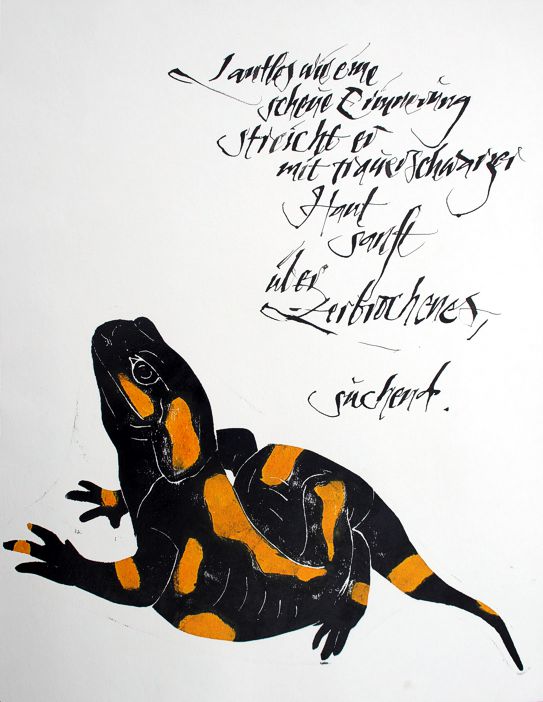 Lautlos wie eine
scheue Erinnerung
streicht er
mit trauerschwarzer
Haut
sanft
über
Zerbrochenes,
suchend.